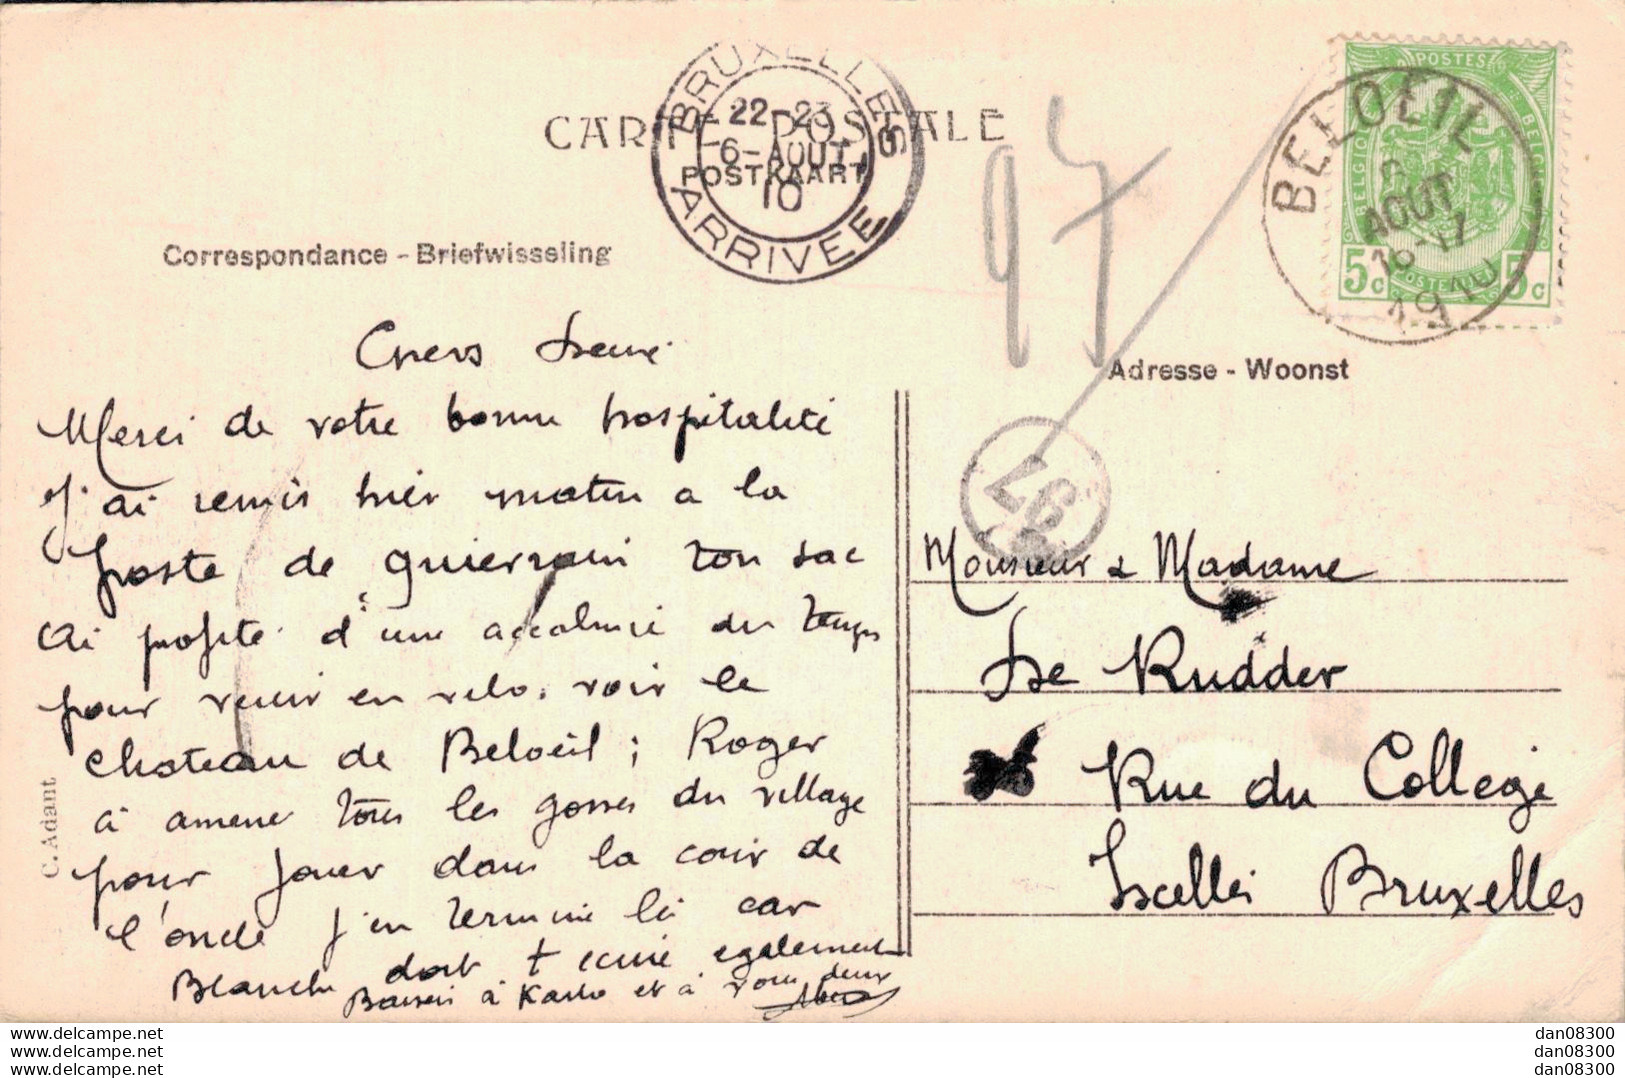 CARTE POSTALE
POSTKAART
BRUXELLES
22-23
6-AOUT
10
ARRIVEE
97
BELOEIL
6
AOUT
16-17
1910
POSTES
BELGIQUE
BELGIË
5c
POSTERIJEN
5c
Correspondance - Briefwisseling
Adresse - Woonst
97
Chers
Merci de votre bonne hospitalité
J'ai remis hier matin a la
poste de quierrain ton sac
Ai profité d'une accalmie du temps
pour venir en vélo. voir le
chateau de Beloeil ; Roger
à amené tous les gosses du village
pour jouer dans la cour de
l'oncle j'en termine là car
Blanche doit t'ecrire egalement
Baisers à Karlo et à vous deux
Monsieur & Madame
De Rudder
Rue du College
Ixelles Bruxelles
C. Adant
dan08300
dan08300
dan08300
dan08300
dan08300
dan08300